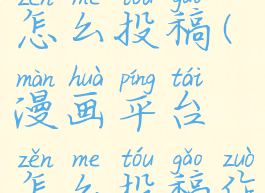 zěn me tóu gǎo
怎么投稿(
màn huà píng tái
漫画平台
zěn me tóu gǎo zuò
怎么投稿作